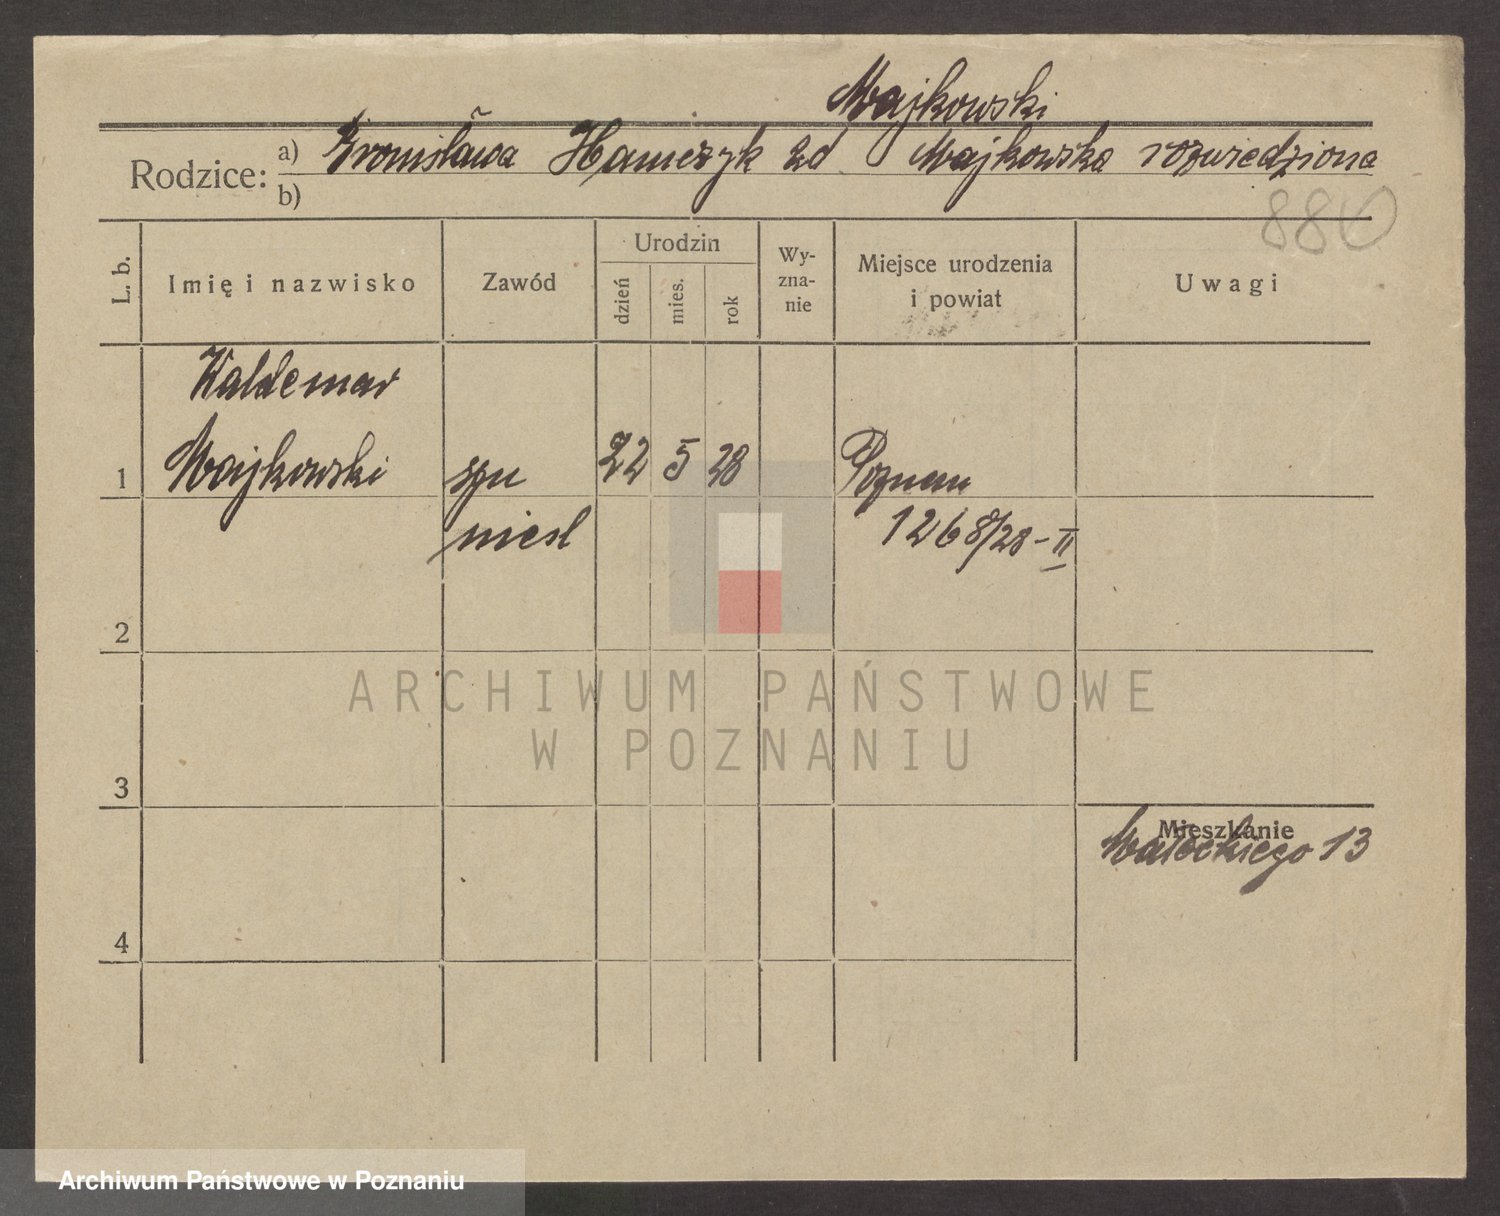 Majkowski
Rodzice: a) Bronisława Hamczyk zd Majkowska rozwiedziona
b)
880
L. b. Imię i nazwisko Zawód Urodzin dzień mies. rok Wy-zna-nie Miejsce urodzenia i powiat Uwagi
Waldemar
1 Majkowski syn 22 5 28 Poznań
niesl 1268/28-II
2
ARCHIWUM PAŃSTWOWE
W POZNANIU
3
Mieszkanie
Małeckiego 13
4
Archiwum Państwowe w Poznaniu